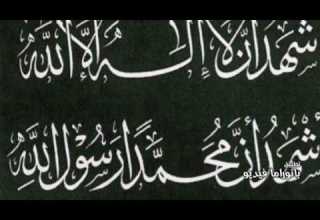 شهد ان لا إله إلا الله
أشهد أنَّ مُحَمَّدًا رَسُولُ اللَّهِ
بانوراما فيديو